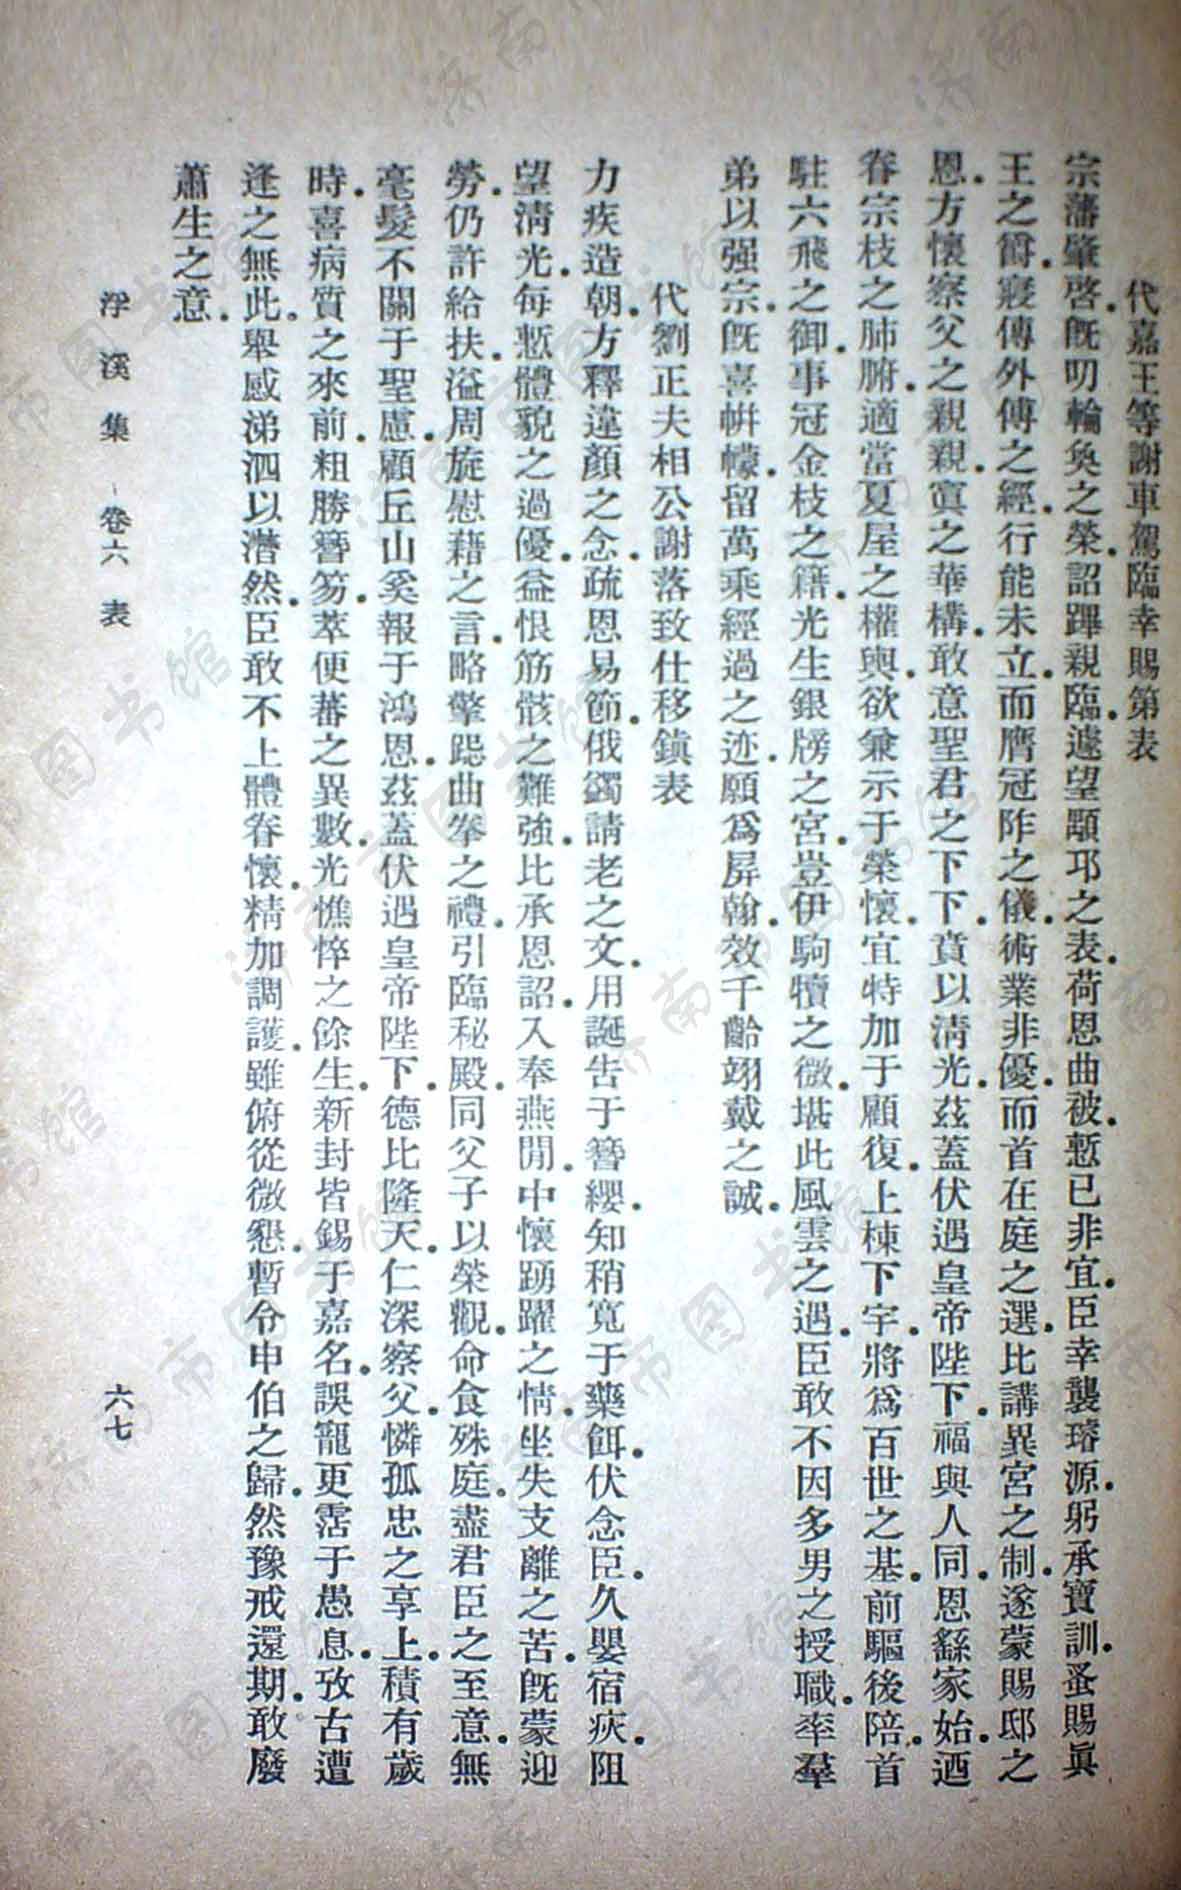 代嘉王等謝車駕臨幸賜第表
宗藩肇啓.既叨輪奐之榮.詔蹕親臨.遽望顒卭之表.荷恩曲被.慙已非宜.臣幸襲璿源.躬承寶訓.蚤賜眞
王之爵.寖傳外傅之經.行能未立.而膺冠阼之儀.術業非優.而首在庭之選.比講異宮之制.遂蒙賜邸之
恩.方懷察父之親親.寘之華構.敢意聖君之下下.賁以淸光.茲蓋伏遇皇帝陛下.福與人同.恩繇家始.迺
眷宗枝之肺腑.適當夏屋之權輿.欲兼示于榮懷.宜特加于顧復.上棟下宇.將爲百世之基.前驅後陪.首
駐六飛之御.事冠金枝之籍.光生銀牓之宮.豈伊駒犢之微.堪此風雲之遇.臣敢不因多男之授職.率羣
弟以强宗.既喜帡幪.留萬乘經過之迹.願爲屏翰.效千齡翊戴之誠.
代劉正夫相公謝落致仕移鎭表
力疾造朝.方釋違顏之念.疏恩易節.俄蠲請老之文.用誕告于簪纓.知稍寬于藥餌.伏念臣久嬰宿疢.阻
望淸光.每慙體貌之過優.益恨筋骸之難強.比承恩詔.入奉燕閒.中懷踴躍之情.坐失支離之苦.既蒙迎
勞.仍許給扶.溢周旋慰藉之言.略擎跽曲拳之禮.引臨秘殿.同父子以榮觀.命食殊庭.盡君臣之至意.無
毫髮不關于聖慮.顧丘山奚報于鴻恩.茲蓋伏遇皇帝陛下.德比隆天.仁深察父.憐孤忠之享上.積有歲
時.喜病質之來前.粗勝簪笏.萃便蕃之異數.光憔悴之餘生.新封皆錫于嘉名.誤寵更霑于愚息.攷古遭
逢之無此.舉感涕泗以潸然.臣敢不上體眷懷.精加調護.雖俯從微懇.暫令申伯之歸.然豫戒還期.敢廢
蕭生之意.
浮溪集 卷六 表
六七
济南市图书馆